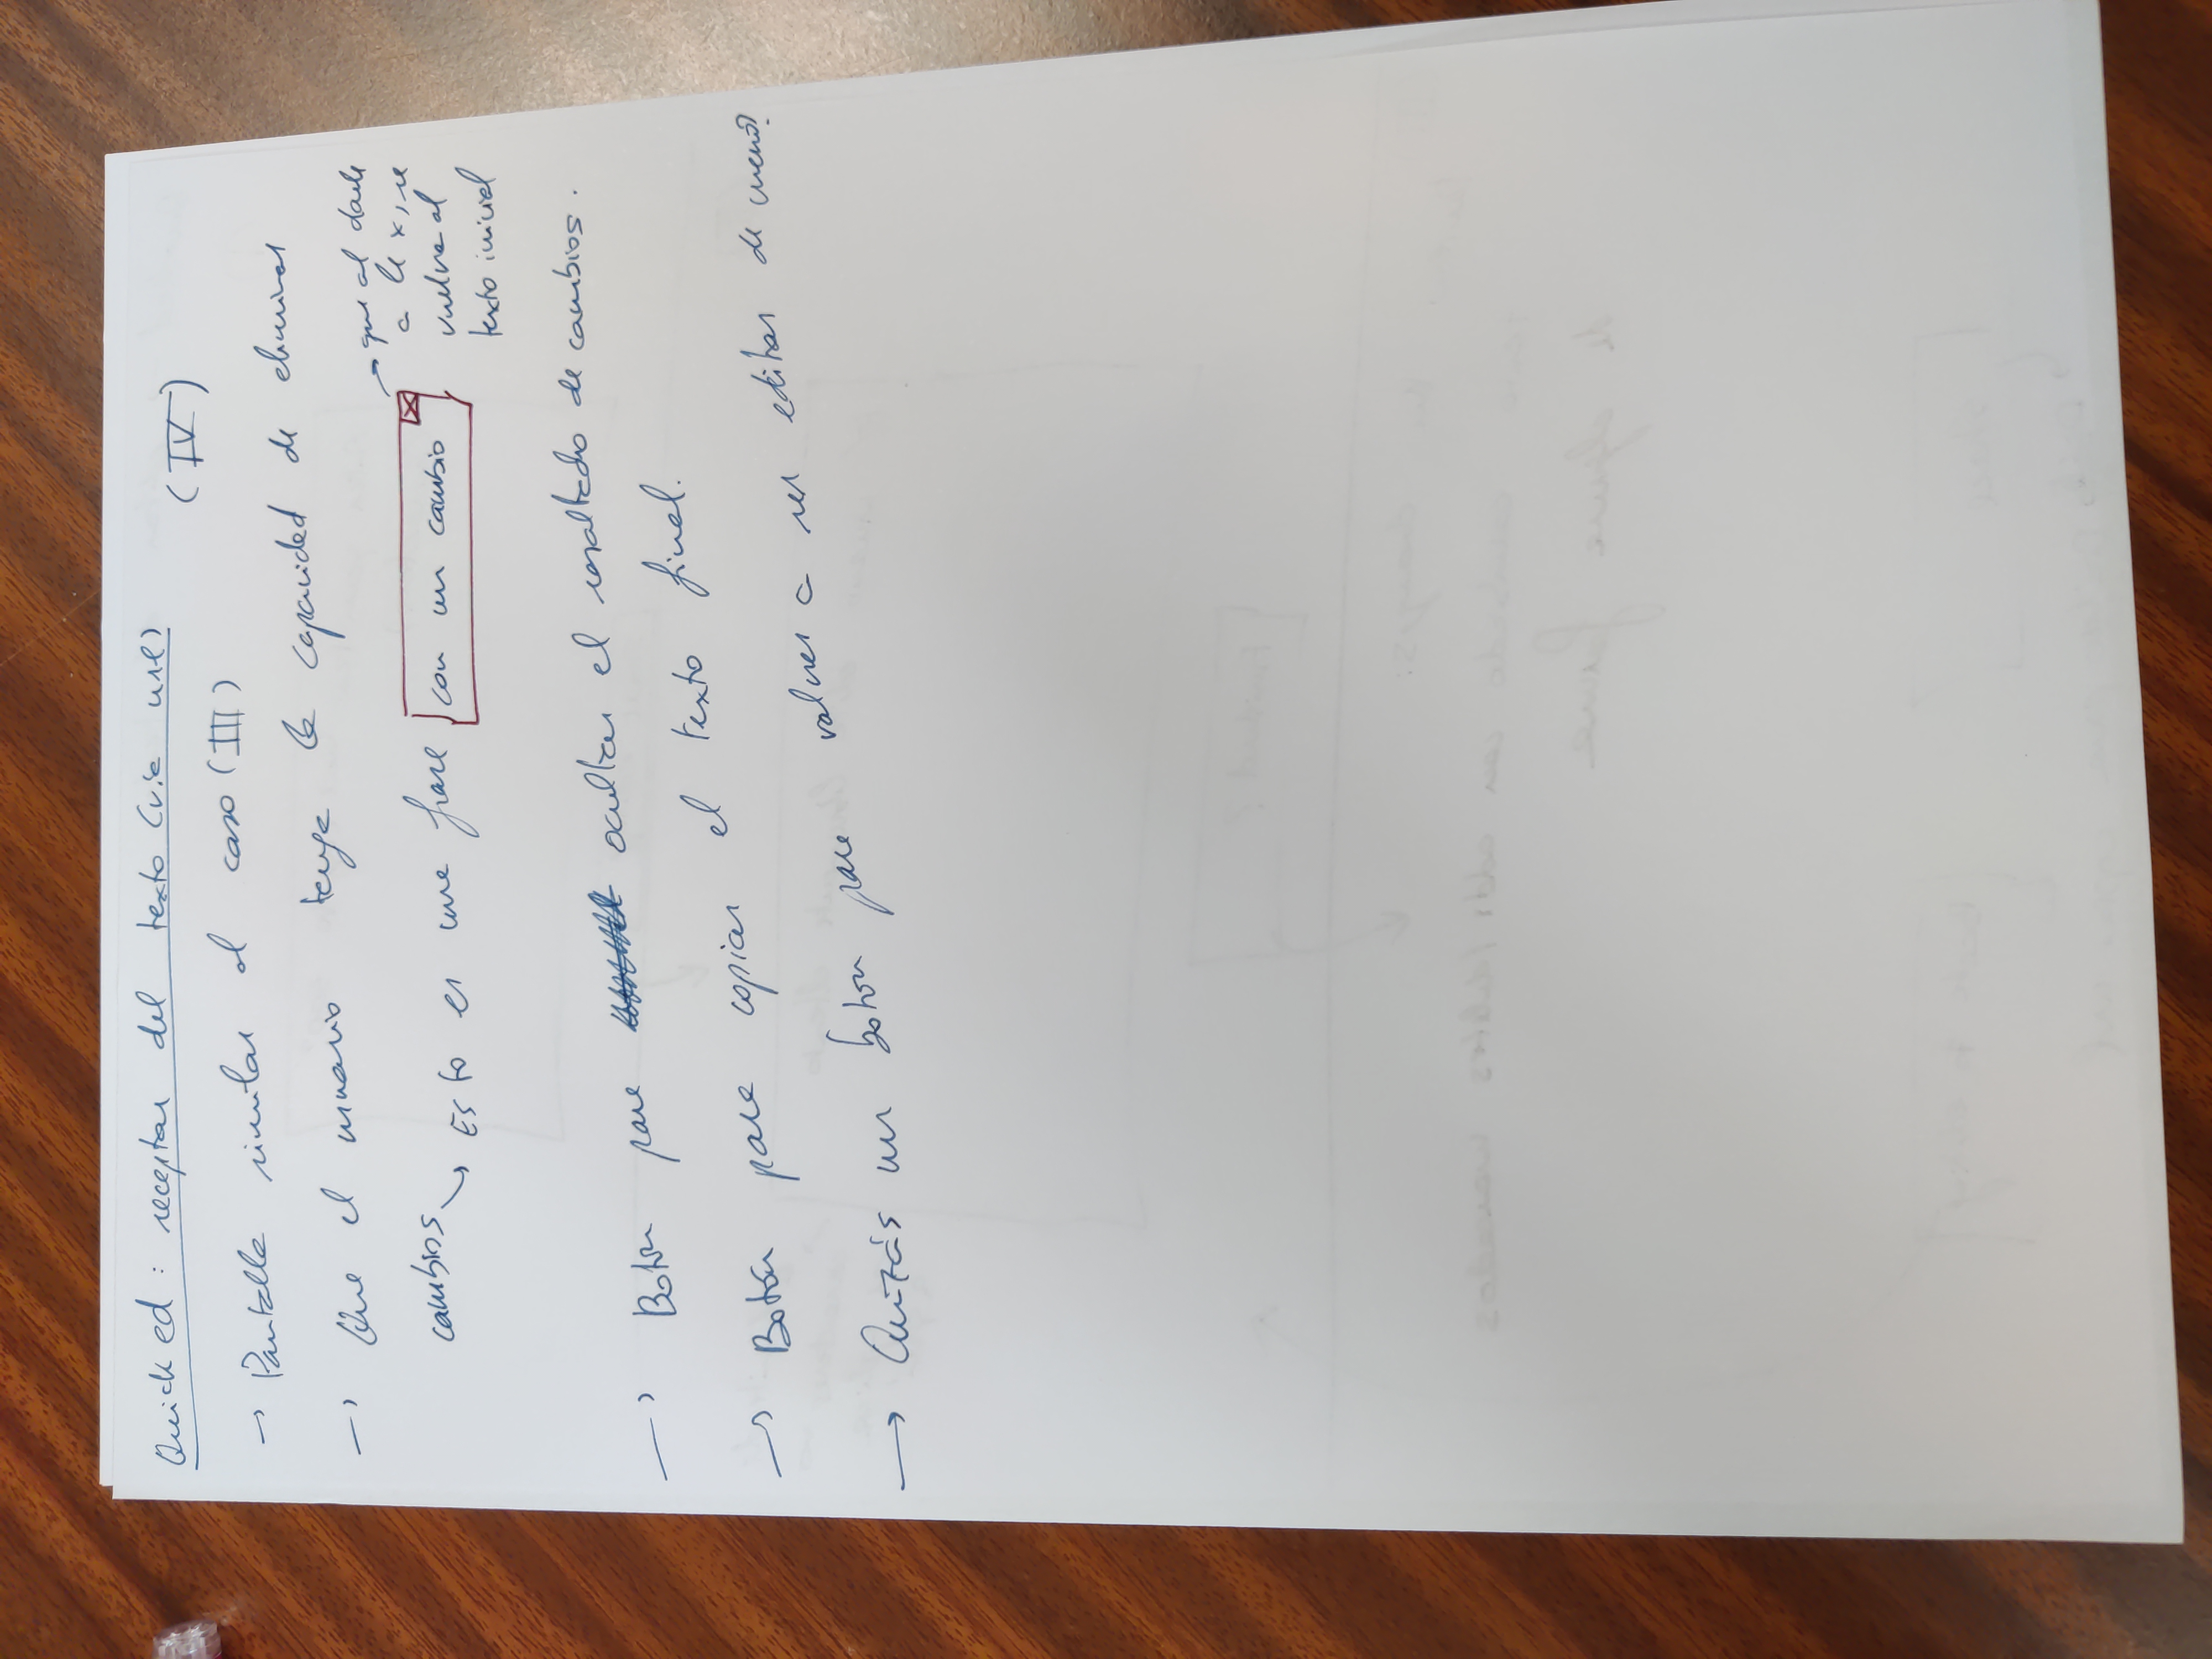 Quick ed: receptor del texto (vía url)
(IV)
→ Pantalla similar al caso (III)
→ Que el usuario tenga la capacidad de eliminar
cambios → Esto es una frase con un cambio
→ que al darle
a la x, se
vuelva al
texto inicial
→ Botón para ocultar el resaltado de cambios.
→ Botón para copiar el texto final.
→ Quizás un botón para volver a ser editor de nuevo?